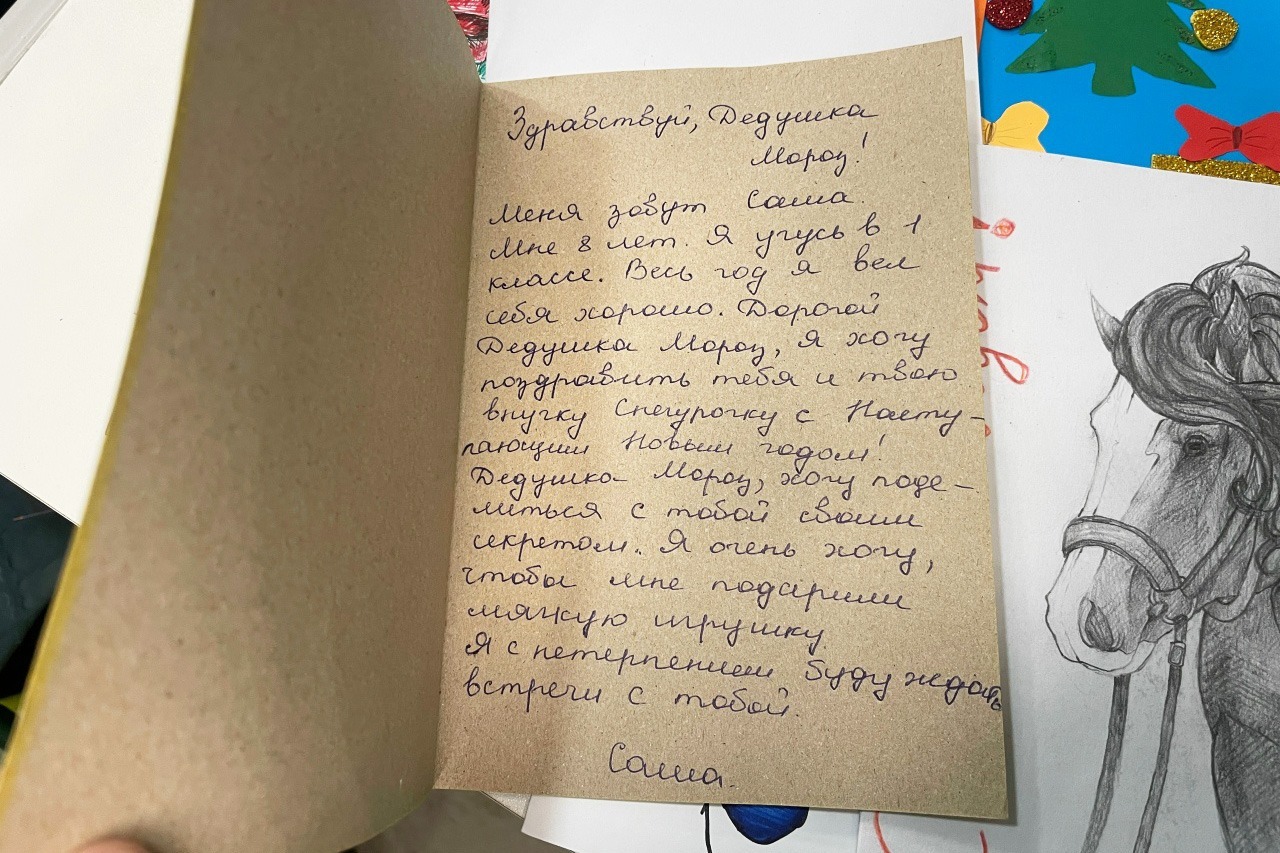 Здравствуй, Дедушка
Мороз!
Меня зовут Саша.
Мне 8 лет. Я учусь в 1
классе. Весь год я вел
себя хорошо. Дорогой
Дедушка Мороз, я хочу
поздравить тебя и твою
внучку Снегурочку с Насту-
пающим Новым годом!
Дедушка Мороз, хочу поде-
литься с тобой своим
секретом. Я очень хочу,
чтобы мне подарили
мягкую игрушку
Я с нетерпением буду ждать
встречи с тобой.
Саша.